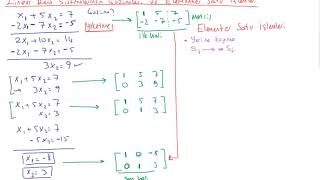 Lineer Denk Sistemlerinin Çözümleri ve Elementer Satır İşlemleri
x₁ + 5x₂ = 7
-2x₁ - 7x₂ = -5
[ 1 5 : 7
-2 -7 : -5 ]
ilk hali
Elementer Satır İşlemler
2x₁ + 10x₂ = 14
-2x₁ - 7x₂ = -5
3x₂ = 9
S₁ → S₁
x₁ + 5x₂ = 7
3x₂ = 9
[ 1 5 7
0 3 9 ]
x₁ + 5x₂ = 7
x₂ = 3
[ 1 5 7
0 1 3 ]
x₁ + 5x₂ = 7
-5x₂ = -15
x₁ = -8
x₂ = 3
[ 1 0 -8
0 1 3 ]
son hali